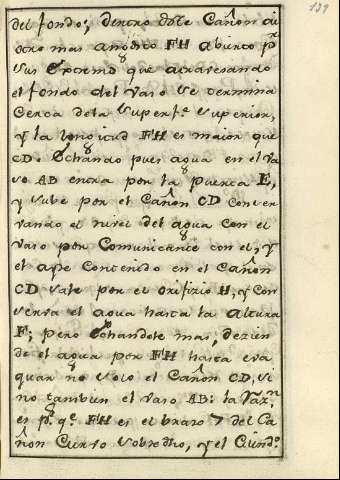 139
del fondo; dentro dste Cañon ai
otro mas angosto FH abierto pr.
sus Extremos que atravesando
el fondo del Vaso se termina
cerca dela Superfe. Superior,
y la longitud FH es maior que
CD. Echando pues agua en el Va
so AB entra por la puerta E,
y sube por el Cañon CD conser
vando el nivel del agua con el
Vaso por Comunicarse con el, y
el ayre contenido en el Cañon
CD sale por el orifizio H, y con
serva el agua hasta la altura
F; pero Echandole mas, dezien
de el agua por FH hasta eva
quar no solo el Cañon CD, si
no tambien el Vaso AB: la Razn.
es pr. qe. FH es el brazo 7 del Ca
ñon Curvo Sobredho, y el